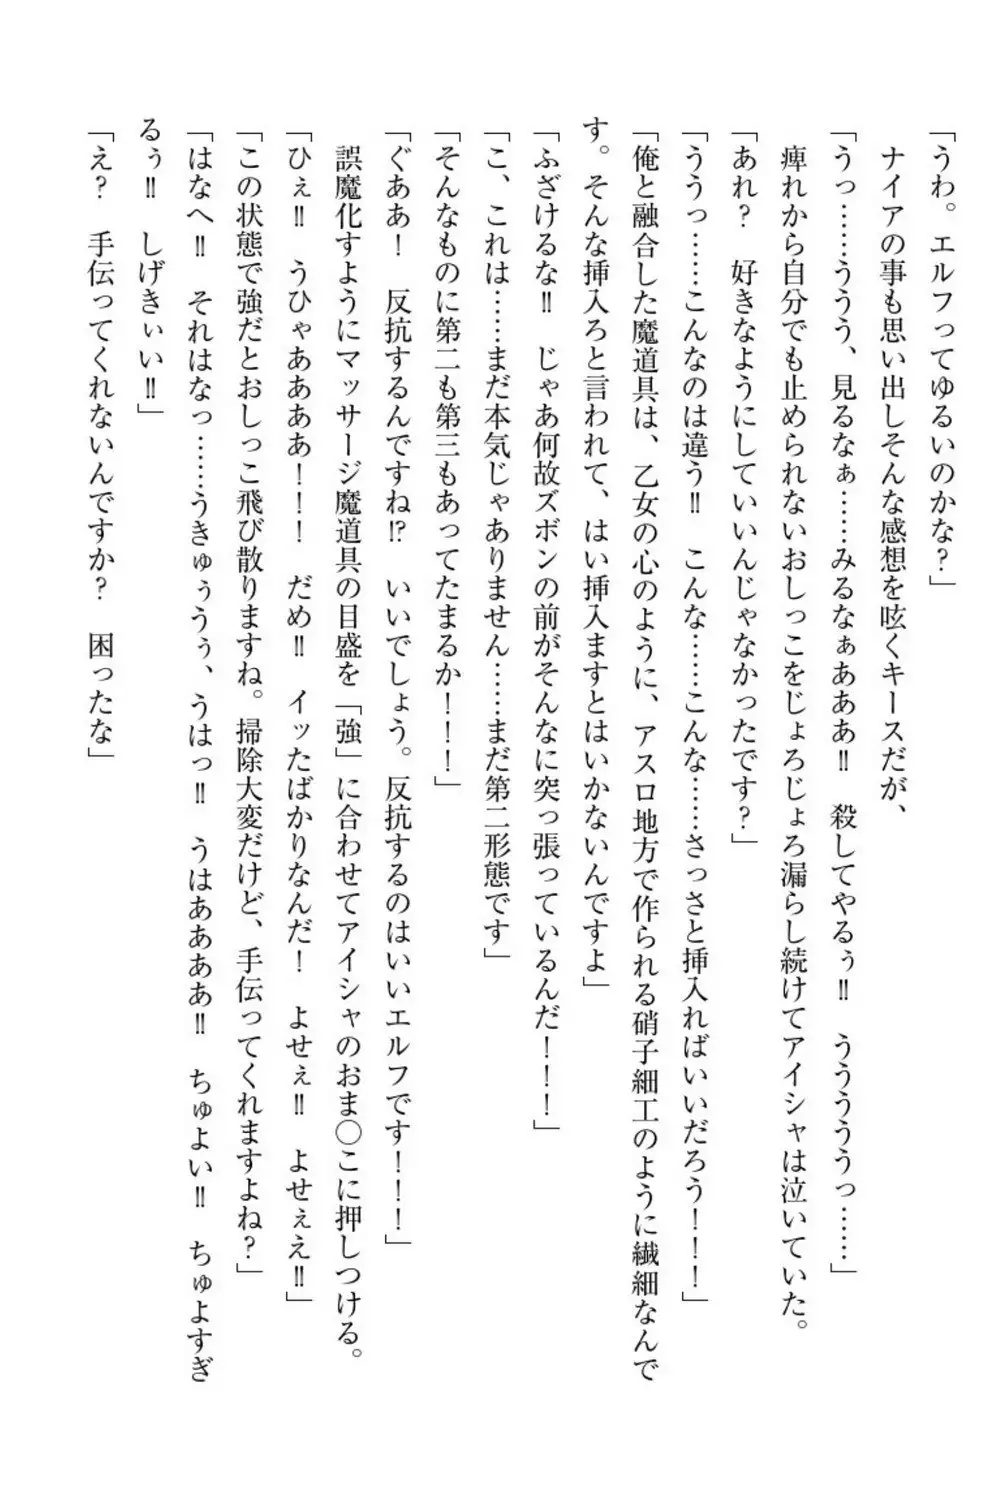 「うわ。エルフってゆるいのかな？」
ナイアの事も思い出しそんな感想を呟くキースだが、
「うっ……ううう、見るなぁ……みるなぁあああ‼　殺してやるぅ‼　ううううっ……」
痺れから自分でも止められないおしっこをじょろじょろ漏らし続けてアイシャは泣いていた。
「あれ？　好きなようにしていいんじゃなかったです？」
「ううっ……こんなのは違う‼　こんな……こんな……さっさと挿入ればいいだろう！！！」
「俺と融合した魔道具は、乙女の心のように、アスロ地方で作られる硝子細工のように繊細なんで
す。そんな挿入ろと言われて、はい挿入ますとはいかないんですよ」
「ふざけるな‼　じゃあ何故ズボンの前がそんなに突っ張っているんだ！！！」
「こ、これは……まだ本気じゃありません……まだ第二形態です」
「そんなものに第二も第三もあってたまるか！！！」
「ぐああ！　反抗するんですね⁉　いいでしょう。反抗するのはいいエルフです！！！」
誤魔化すようにマッサージ魔道具の目盛を「強」に合わせてアイシャのおま〇こに押しつける。
「ひぇ‼　うひゃああああ！！！　だめ‼　イッたばかりなんだ！　よせぇ‼　よせぇえ‼」
「この状態で強だとおしっこ飛び散りますね。掃除大変だけど、手伝ってくれますよね？」
「はなへ‼　それはなっ……うきゅぅうぅ、うはっ‼　うはあああ‼　ちゅよい‼　ちゅよすぎ
るぅ‼　しげきぃい‼」
「え？　手伝ってくれないんですか？　困ったな」